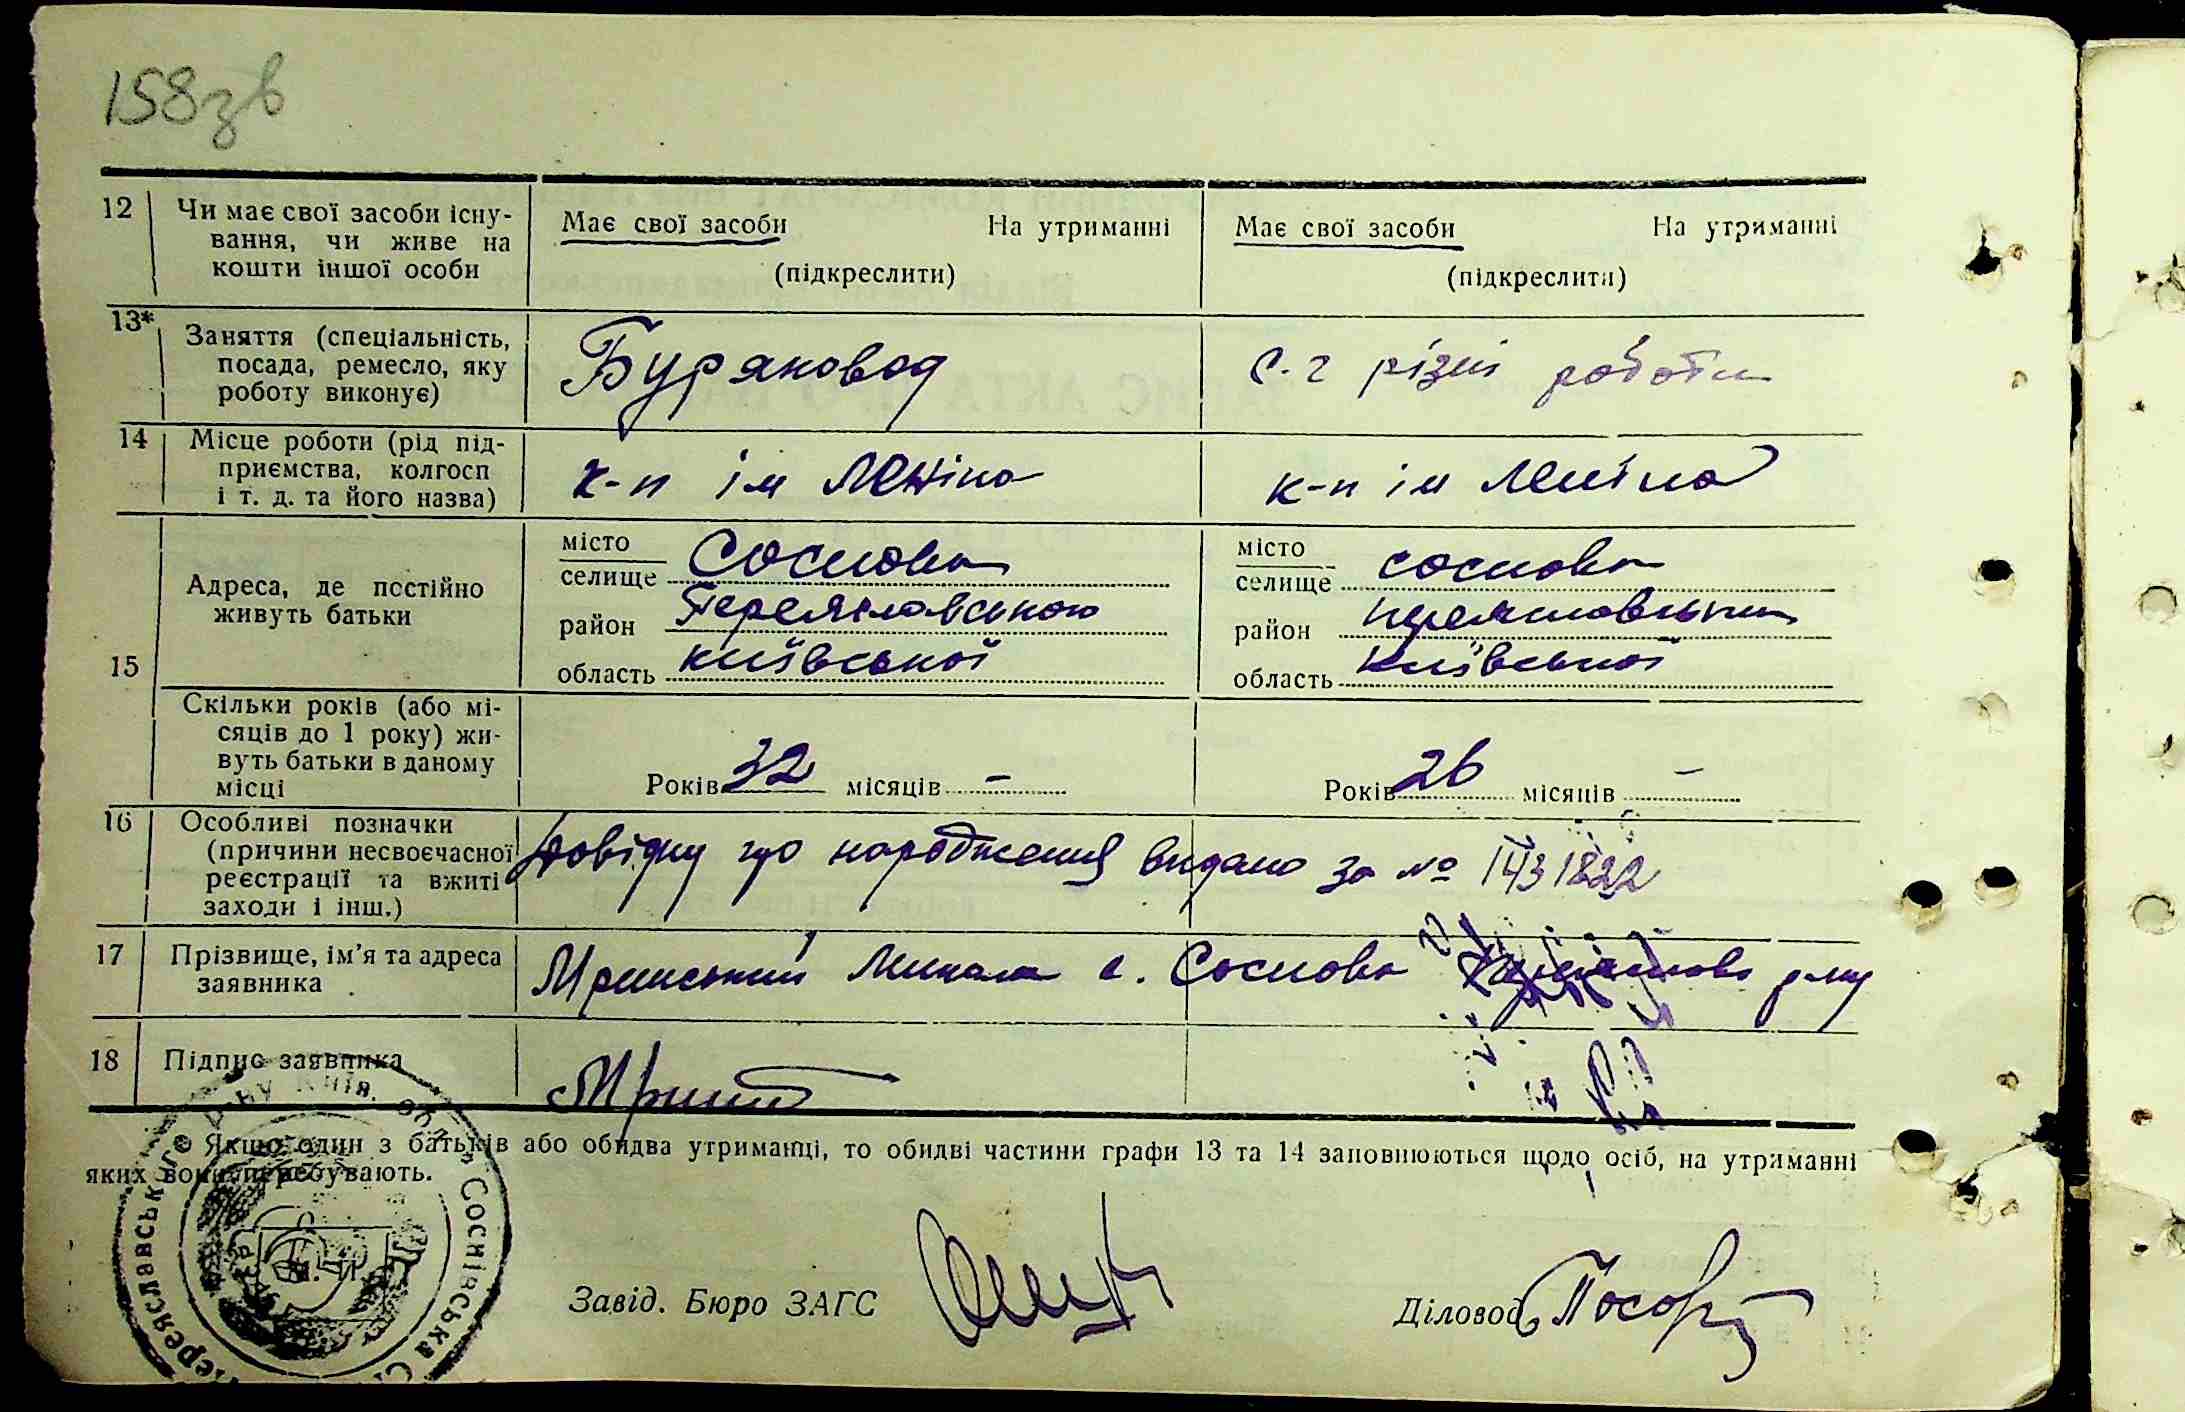 158зв
12 Чи має свої засоби існу-
вання, чи живе на
кошти іншої особи
Має свої засоби На утриманні
(підкреслити)
Має свої засоби На утриманні
(підкреслити)
13* Заняття (спеціальність,
посада, ремесло, яку
роботу виконує)
Буряковод
с-г різні роботи
14 Місце роботи (рід під-
приємства, колгосп
і т. д. та його назва)
к-п ім Леніна
к-п ім Леніна
15 Адреса, де постійно
живуть батьки
місто
селище Соснова
район Переяславського
область Київської
місто
селище соснова
район
область Київської
Скільки років (або мі-
сяців до 1 року) жи-
вуть батьки в даному
місці
Років 32 місяців –
Років 26 місяців –
16 Особливі позначки
(причини несвоєчасної
реєстрації та вжиті
заходи і інш.)
Довідку про народження видано за № 1431822
17 Прізвище, ім'я та адреса
заявника
Мринський Микола с. Соснова
18 Підпис заявника
Якщо один з батьків або обидва утриманці, то обидві частини графи 13 та 14 заповнюються щодо осіб, на утриманні
яких вони перебувають.
Завід. Бюро ЗАГС
Діловод
Переяславськ
Соснівська